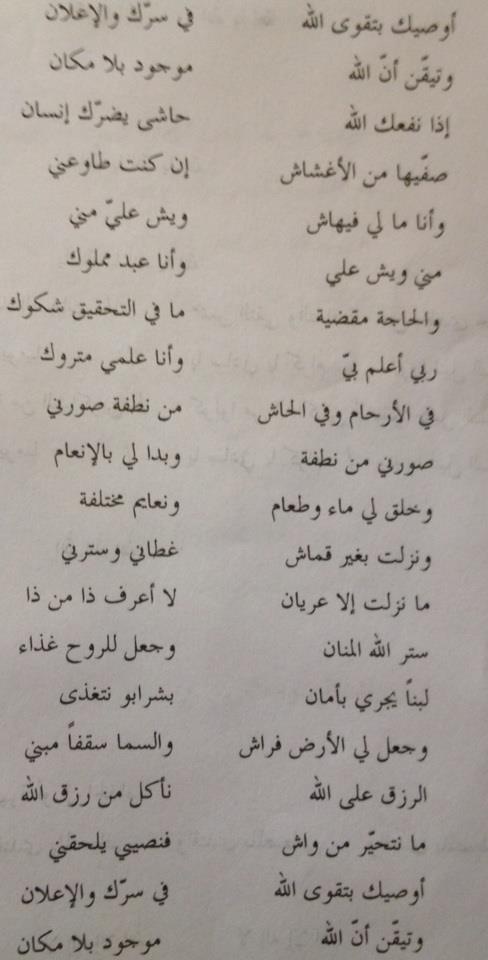 أوصيك بتقوى الله في سرّك والإعلان
وتيقّن أنّ الله موجود بلا مكان
إذا نفعك الله حاشى يضرّك إنسان
صفّيها من الأغشاش إن كنت طاوعني
وأنا ما لي فيهاش ويش عليّ مني
مني ويش علي وأنا عبد مملوك
والحاجة مقضية ما في التحقيق شكوك
ربي أعلم بيّ وأنا علمي متروك
في الأرحام وفي الحاش من نطفة صورني
صورني من نطفة وبدا لي بالإنعام
وخلق لي ماء وطعام ونعايم مختلفة
ونزلت بغير قماش غطاني وسترني
ما نزلت إلا عريان لا أعرف ذا من ذا
ستر الله المنان وجعل للروح غذاء
لبناً يجري بأمان بشرابو نتغذى
وجعل لي الأرض فراش والسما سقفاً مبني
الرزق على الله نأكل من رزق الله
ما نتحيّر من واش فنصيبي يلحقني
أوصيك بتقوى الله في سرّك والإعلان
وتيقّن أنّ الله موجود بلا مكان